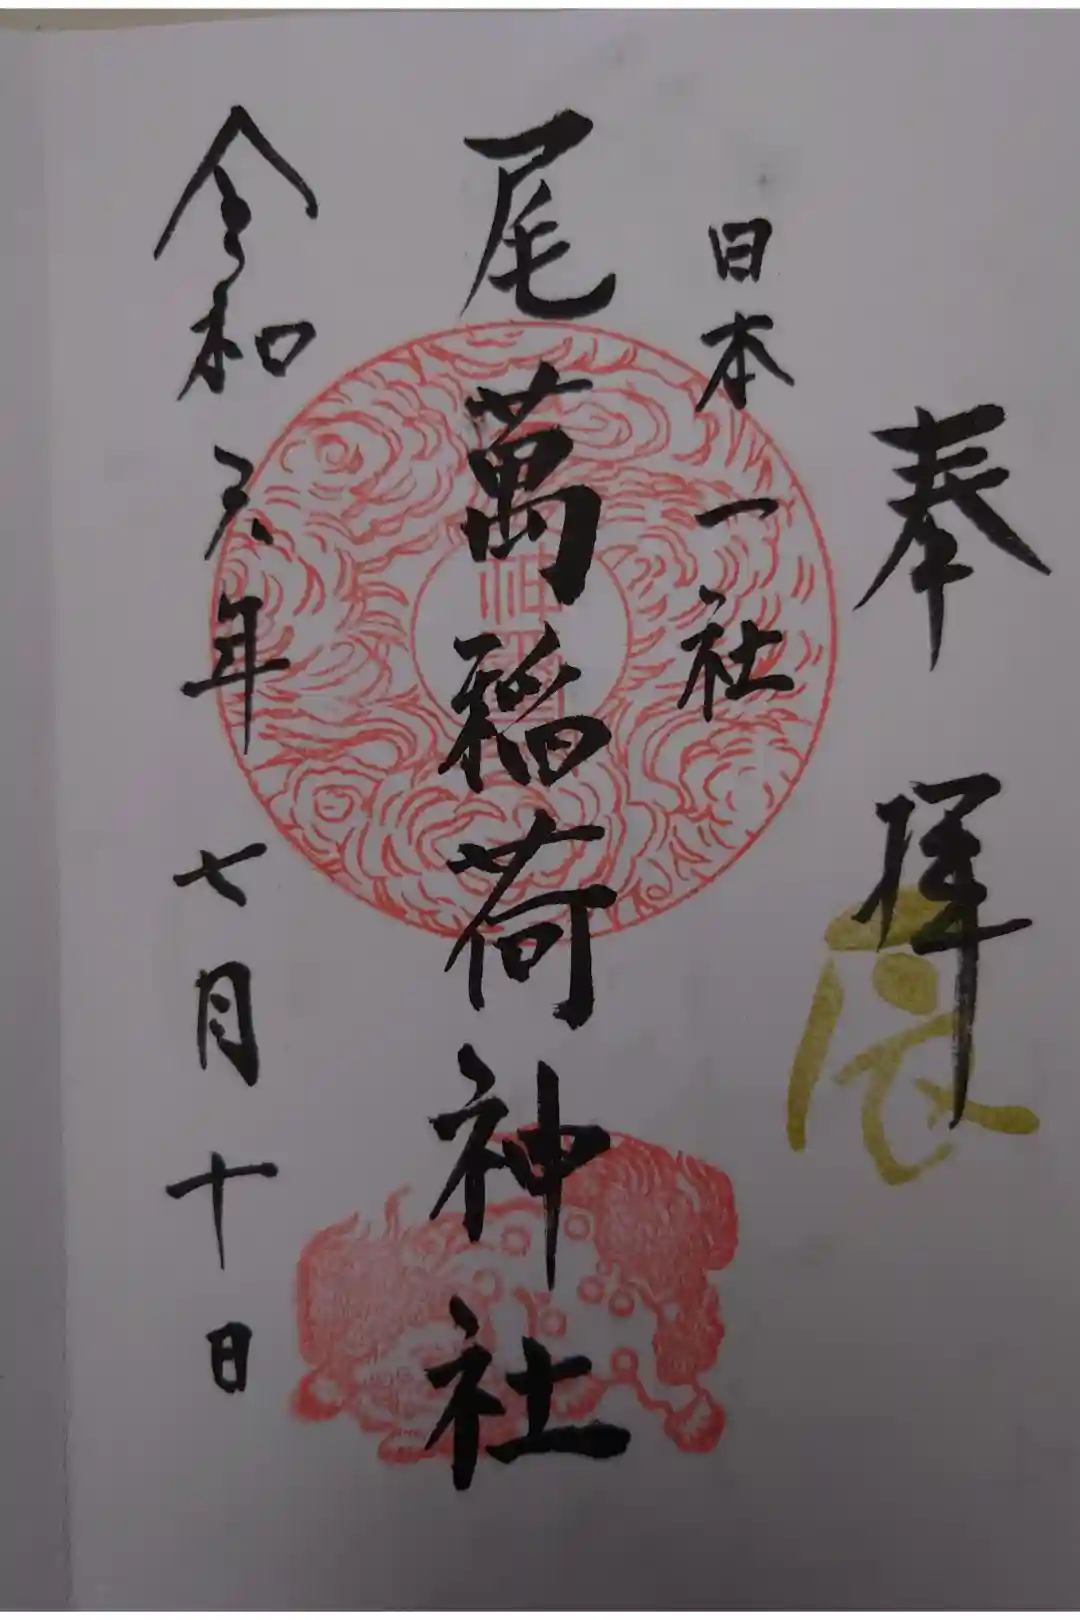 奉拝
日本一社
尾萬稲荷神社
令和六年七月十日
辰